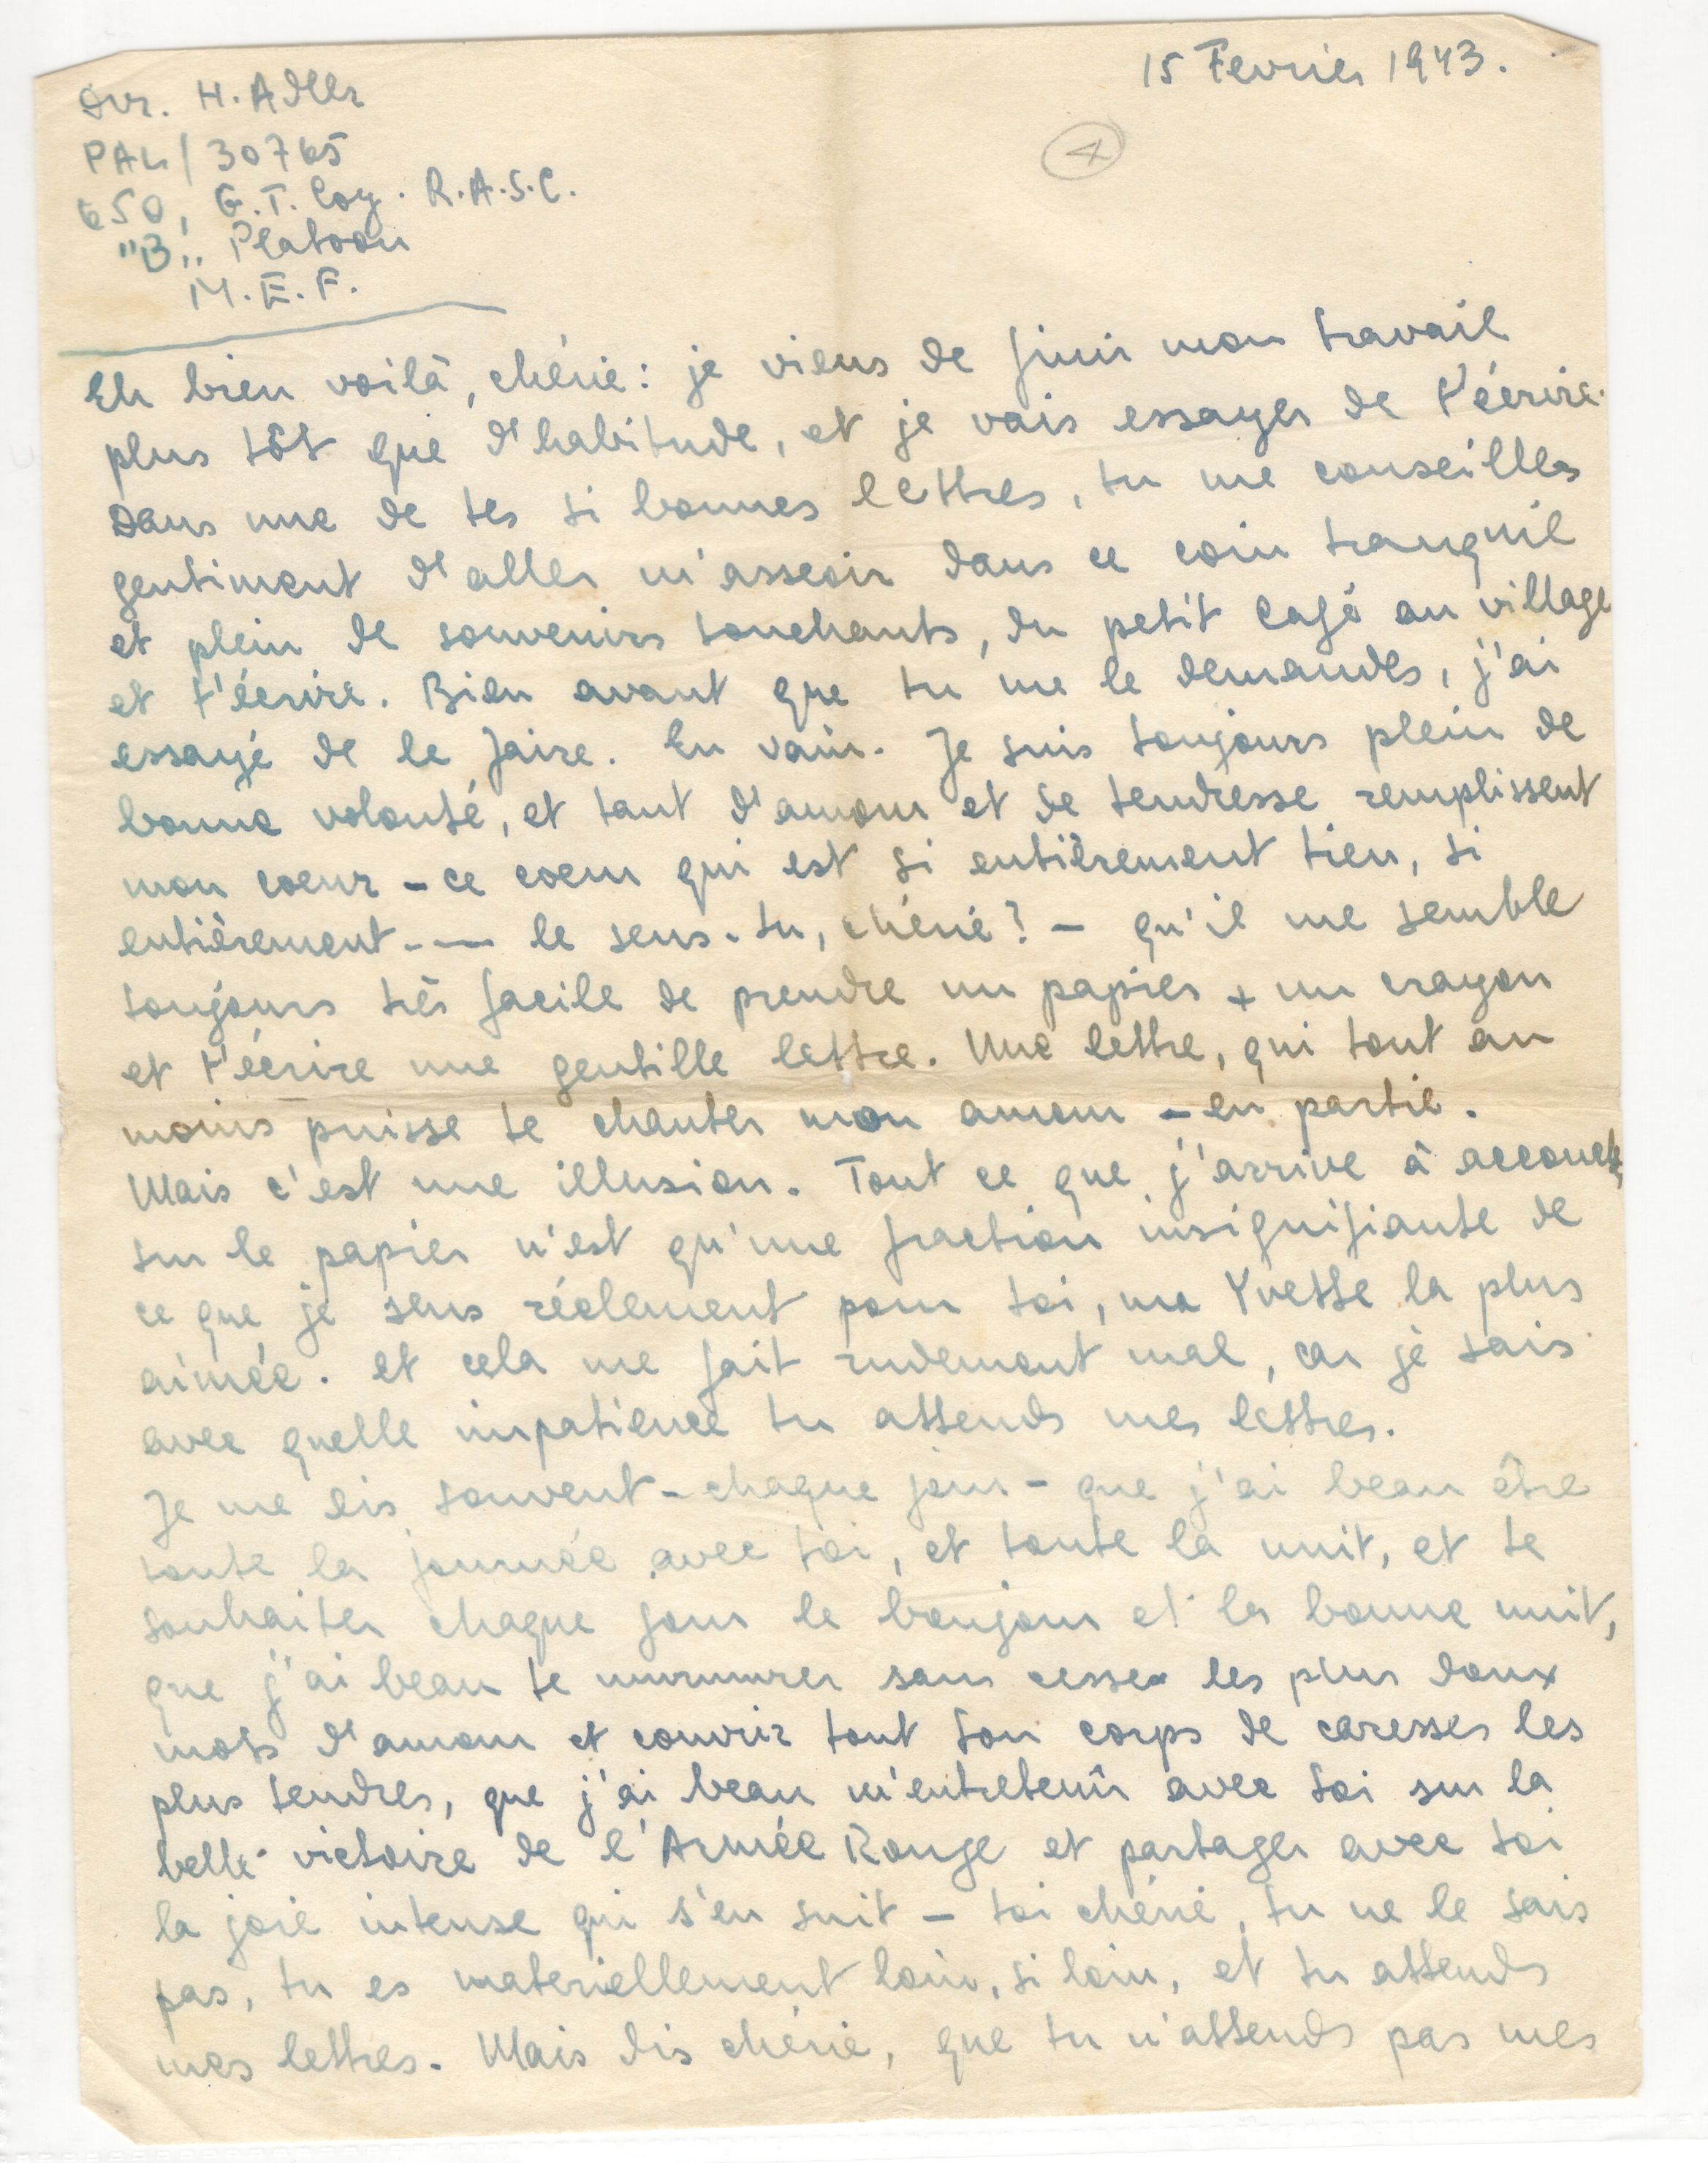 15 Fevrier 1943.
4
Dvr. H. Adler
PAL/30765
650, G.T. Coy. R.A.S.C.
"B" Platoon
M.E.F.
Eh bien voilà, chérie: je viens de finir mon travail
plus tôt que d'habitude, et je vais essayer de t'écrire.
Dans une de tes si bonnes lettres, tu me conseilles
gentiment d'aller m'asseoir dans ce coin tranquil
et plein de souvenirs touchants, du petit Café au village
et t'écrire. Bien avant que tu me le demandes, j'ai
essayé de le faire. En vain. Je suis toujours plein de
bonne volonté, et tant d'amour et de tendresse remplissent
mon coeur - ce coeur qui est si entièrement tien, si
entièrement -.— le sens-tu, chérie? — qu'il me semble
toujours très facile de prendre un papier + un crayon
et t'écrire une gentille lettre. Une lettre, qui tout au
moins puisse te chanter mon amour - en partie.
Mais c'est une illusion. Tout ce que j'arrive à accoucher
sur le papier n'est qu'une fraction insignifiante de
ce que je sens réelement pour toi, ma Yvette la plus
aimée. et cela me fait rudement mal, car je sais
avec quelle impatience tu attends mes lettres.
Je me dis souvent - chaque jour - que j'ai beau être
toute la journée avec toi, et toute la nuit, et te
souhaiter chaque jour le bonjour et la bonne nuit,
que j'ai beau te murmurer sans cesse les plus doux
mots d'amour et couvrir tout ton corps de caresses les
plus tendres, que j'ai beau m'entretenir avec toi sur la
belle victoire de l'Armée Rouge et partager avec toi
la joie intense qui s'en suit — toi chérie, tu ne le sais
pas, tu es materiellement loin, si loin, et tu attends
mes lettres. Mais dis chérie, que tu n'attends pas mes